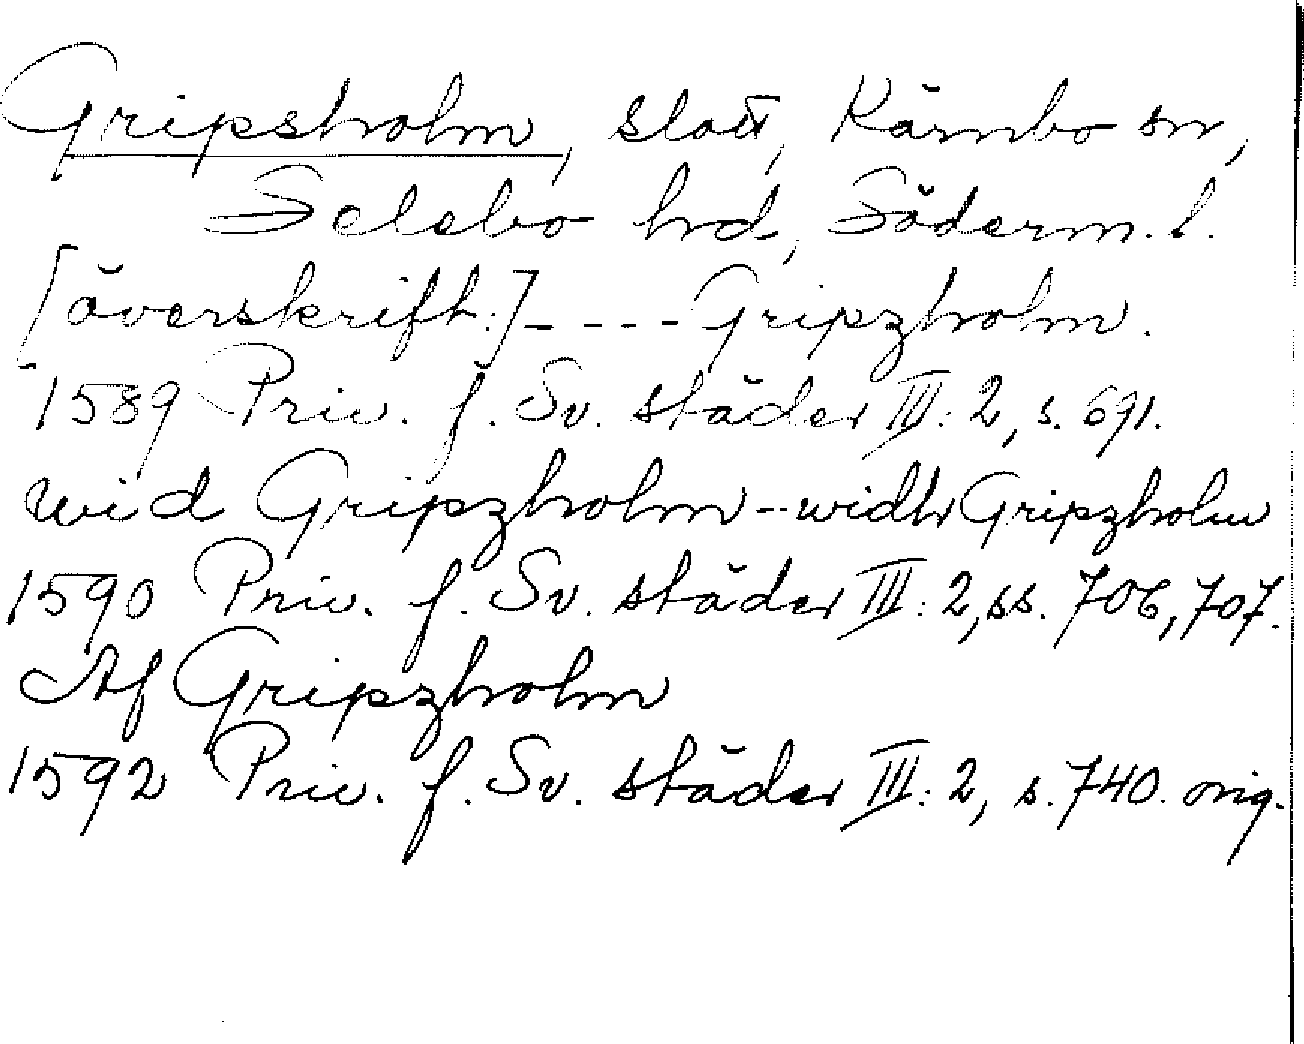 Gripsholm, slott, Kärnbo sn,
Selebo hd, Söderm. l.
[överskrift:] - - - - Gripzholm.
1589 Priv. f. Sv. städer III: 2, s. 691.
wid Gripzholm -- widh Gripzholm
1590 Priv. f. Sv. städer III: 2, ss. 706, 707.
Af Gripzholm
1592 Priv. f. Sv. städer III: 2, s. 740. orig.